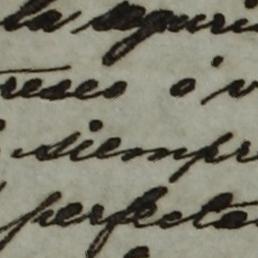 la seguri
reseo ó v
siempr
perfecta